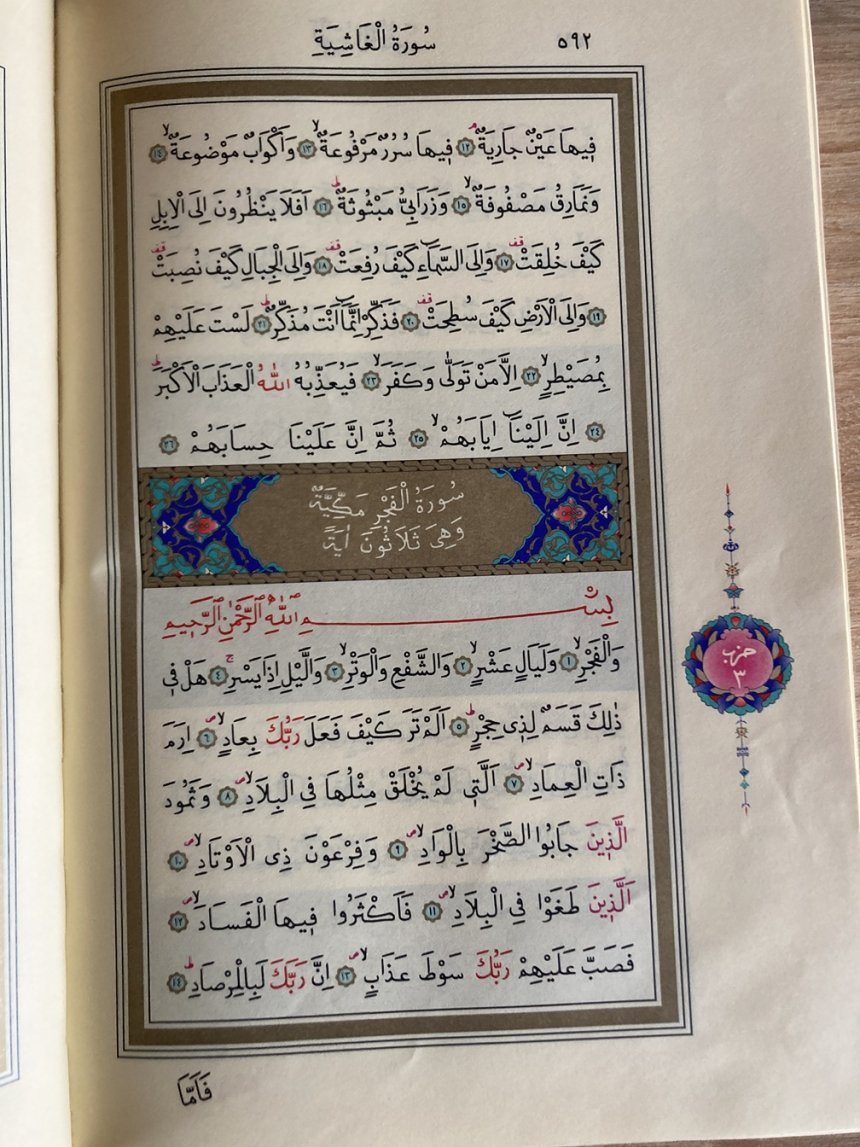 سُورَةُ الْغَاشِيَةِ ٥٩٢
فِيهَا عَيْنٌ جَارِيَةٌ ۝١٢ فِيهَا سُرُرٌ مَرْفُوعَةٌ ۝١٣ وَاَكْوَابٌ مَوْضُوعَةٌ ۝١٤
وَنَمَارِقُ مَصْفُوفَةٌ ۝١٥ وَزَرَابِيُّ مَبْثُوثَةٌ ۝١٦ اَفَلَا يَنْظُرُونَ اِلَى الْاِبِلِ
كَيْفَ خُلِقَتْ ۝١٧ وَاِلَى السَّمَٓاءِ كَيْفَ رُفِعَتْ ۝١٨ وَاِلَى الْجِبَالِ كَيْفَ نُصِبَتْ
۝١٩ وَاِلَى الْاَرْضِ كَيْفَ سُطِحَتْ ۝٢٠ فَذَكِّرْ اِنَّمَٓا اَنْتَ مُذَكِّرٌ ۝٢١ لَسْتَ عَلَيْهِمْ
بِمُصَيْطِرٍ ۝٢٢ اِلَّا مَنْ تَوَلّٰى وَكَفَرَ ۝٢٣ فَيُعَذِّبُهُ اللّٰهُ الْعَذَابَ الْاَكْبَرَ
۝٢٤ اِنَّ اِلَيْنَٓا اِيَابَهُمْ ۝٢٥ ثُمَّ اِنَّ عَلَيْنَا حِسَابَهُمْ ۝٢٦
سُورَةُ الْفَجْرِ مَكِّيَّةٌ
وَهِيَ ثَلَاثُونَ اٰيَةً
بِسْمِ اللّٰهِ الرَّحْمٰنِ الرَّحِيمِ
وَالْفَجْرِ ۝١ وَلَيَالٍ عَشْرٍ ۝٢ وَالشَّفْعِ وَالْوَتْرِ ۝٣ وَالَّيْلِ اِذَا يَسْرِ ۝٤ هَلْ فِي
ذٰلِكَ قَسَمٌ لِذِي حِجْرٍ ۝٥ اَلَمْ تَرَ كَيْفَ فَعَلَ رَبُّكَ بِعَادٍ ۝٦ اِرَمَ
ذَاتِ الْعِمَادِ ۝٧ اَلَّتِي لَمْ يُخْلَقْ مِثْلُهَا فِي الْبِلَادِ ۝٨ وَثَمُودَ
الَّذِينَ جَابُوا الصَّخْرَ بِالْوَادِ ۝٩ وَفِرْعَوْنَ ذِي الْاَوْتَادِ ۝١٠
اَلَّذِينَ طَغَوْا فِي الْبِلَادِ ۝١١ فَاَكْثَرُوا فِيهَا الْفَسَادَ ۝١٢
فَصَبَّ عَلَيْهِمْ رَبُّكَ سَوْطَ عَذَابٍ ۝١٣ اِنَّ رَبَّكَ لَبِالْمِرْصَادِ ۝١٤
فَاَمَّا
حزب
٣